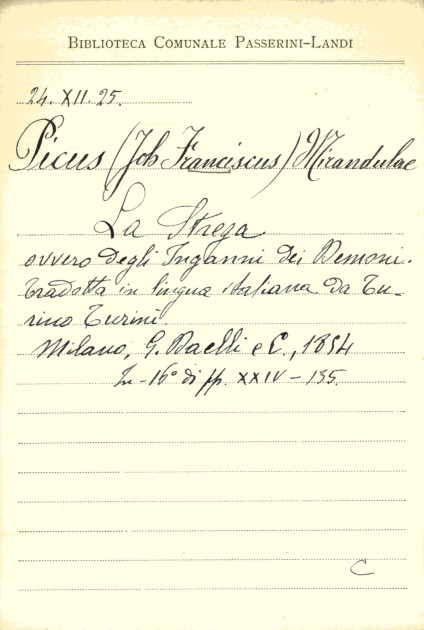 BIBLIOTECA COMUNALE PASSERINI-LANDI
24. XII. 25.
Picus (Joh Franciscus) Mirandulae
La Strega
ovvero degli Inganni dei Demoni.
tradotta in lingua italiana da Tu-
rino Turini.
Milano, G. Daelli e C., 1854
In-16° di pp. XXIV-135.
C